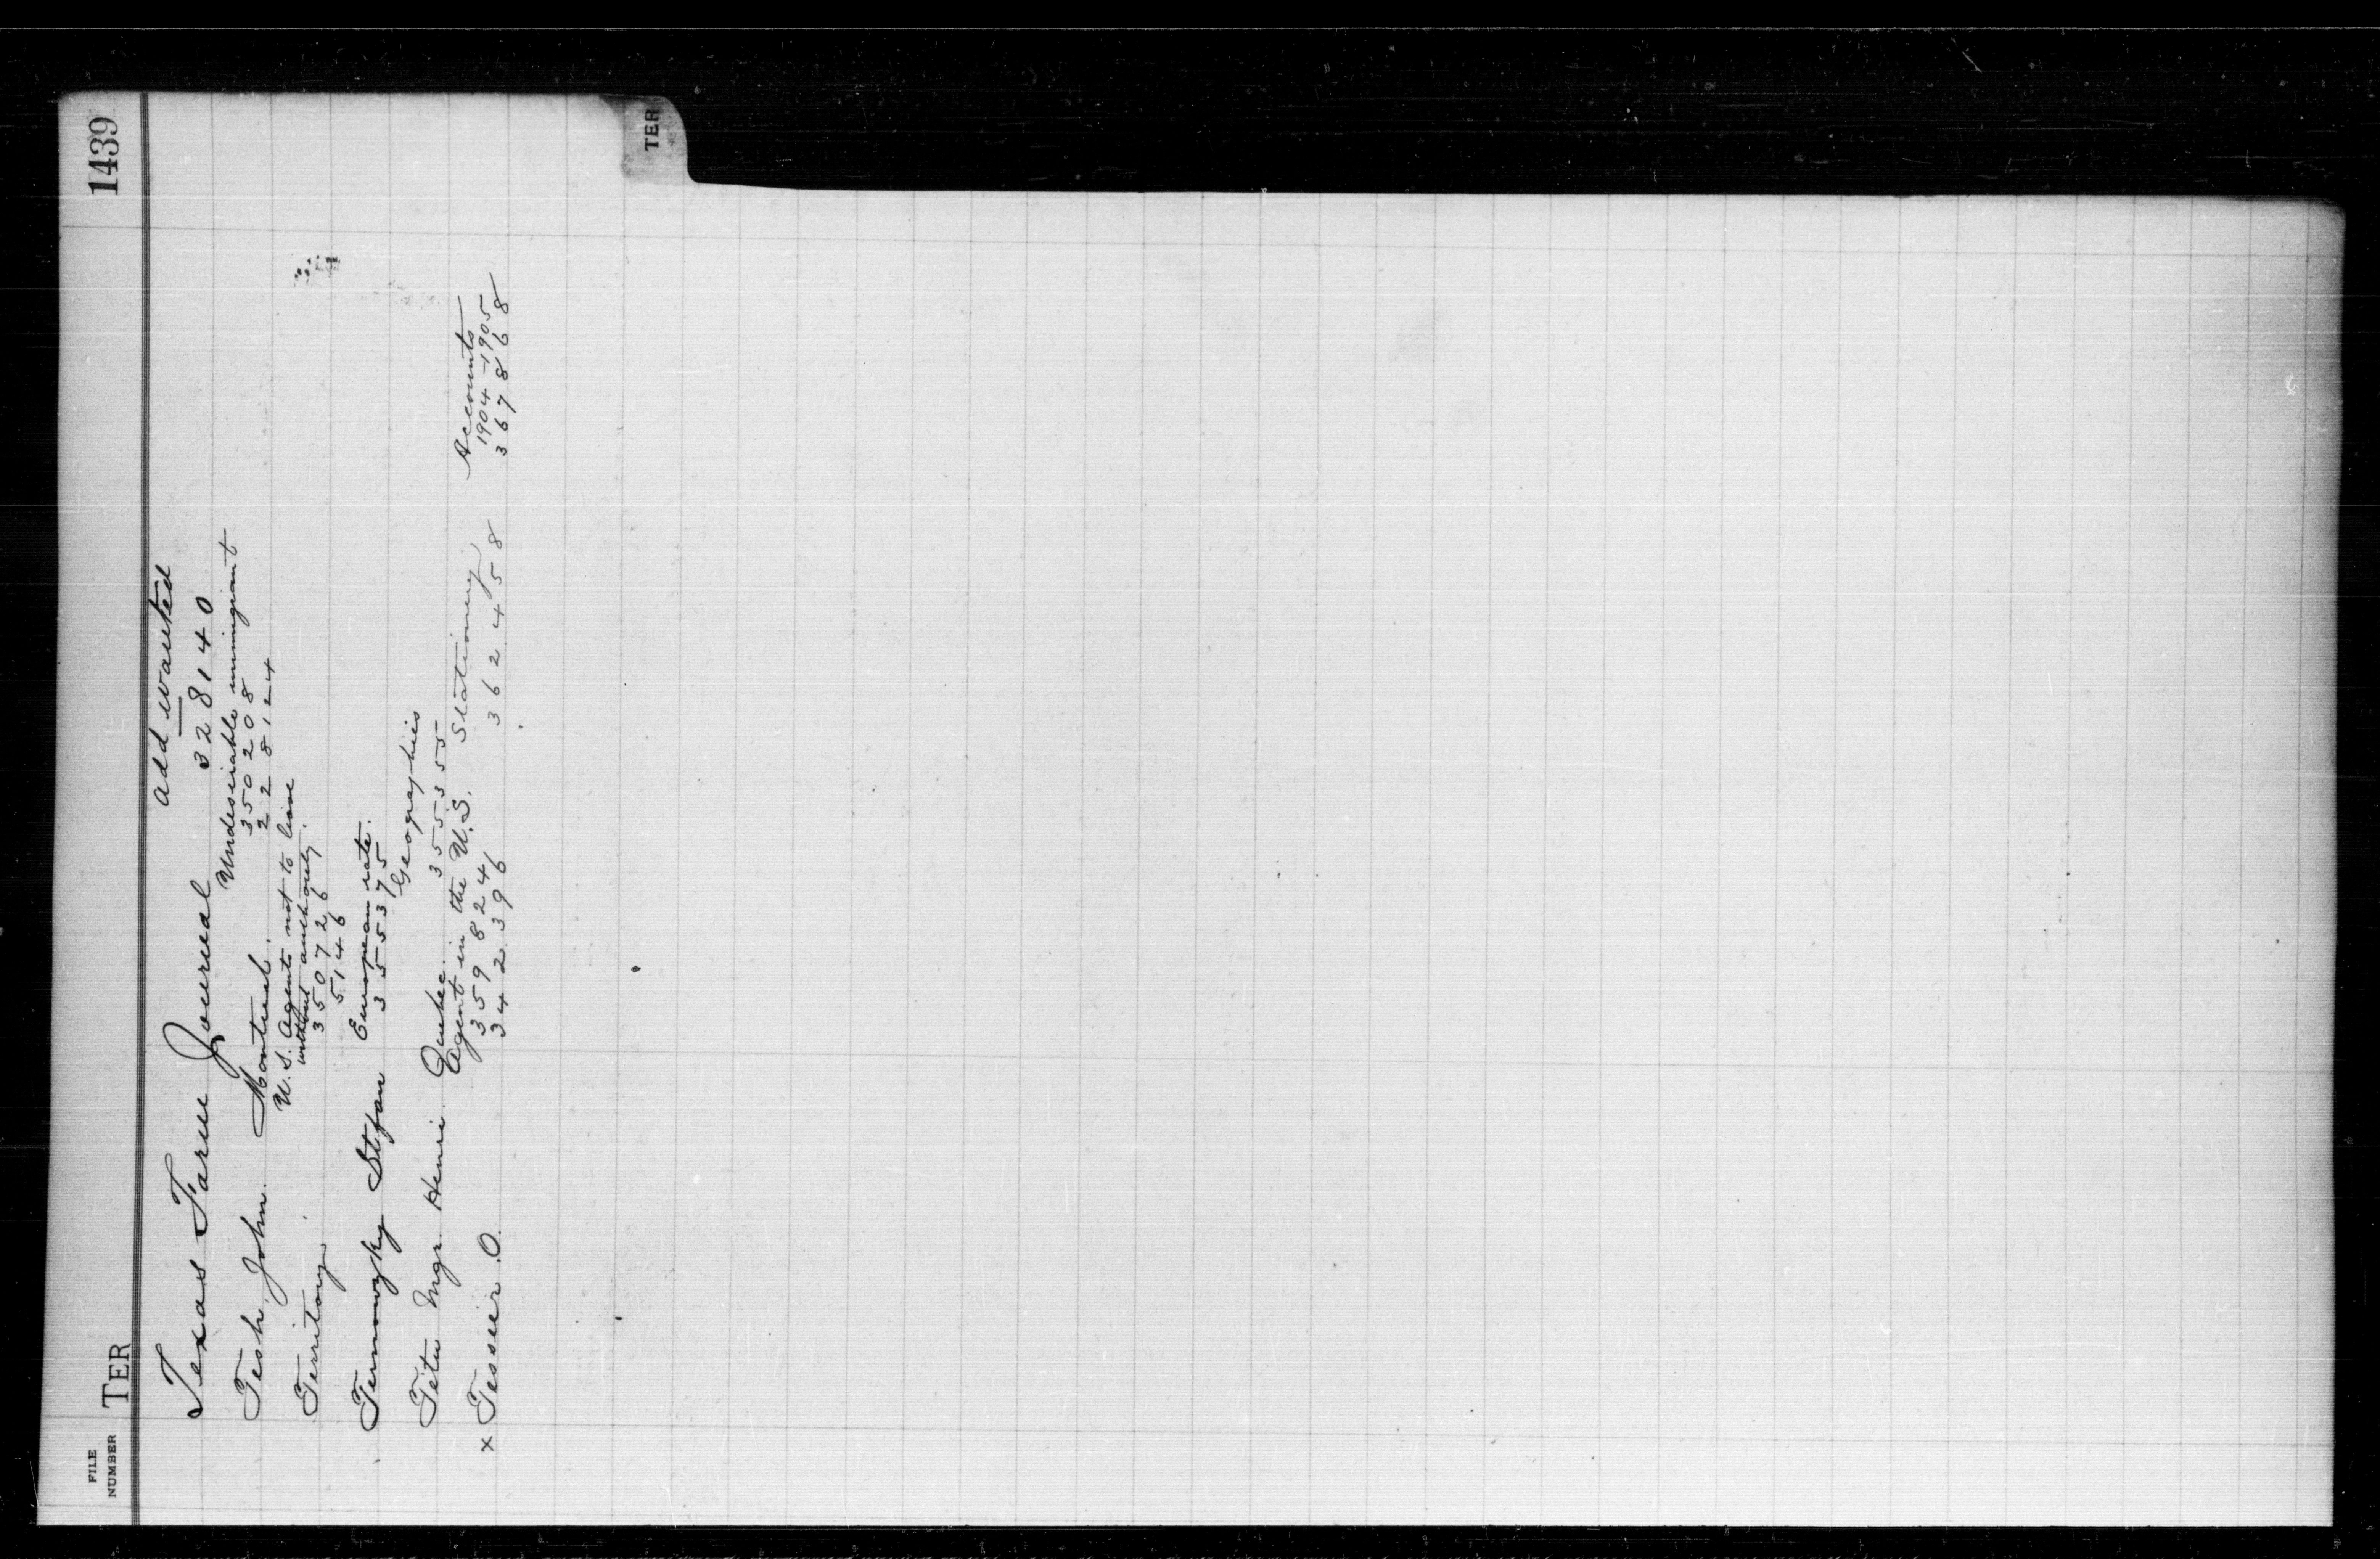 FILE NUMBER TER 1439
TER
Texas Farm Journal add wanted
328140
Tesh John. Montreal. Undesirable immigrant
350208
228124
Territory. U.S. Agents not to leave
without authority.
350726
5146
Stefan European rate.
355375
Tetu Mgr. Henri Quebec. Geographies
355355
x Tessier O. Agent in the U.S. Stationery Accounts
359824 362458 1904-1905
342396 367868